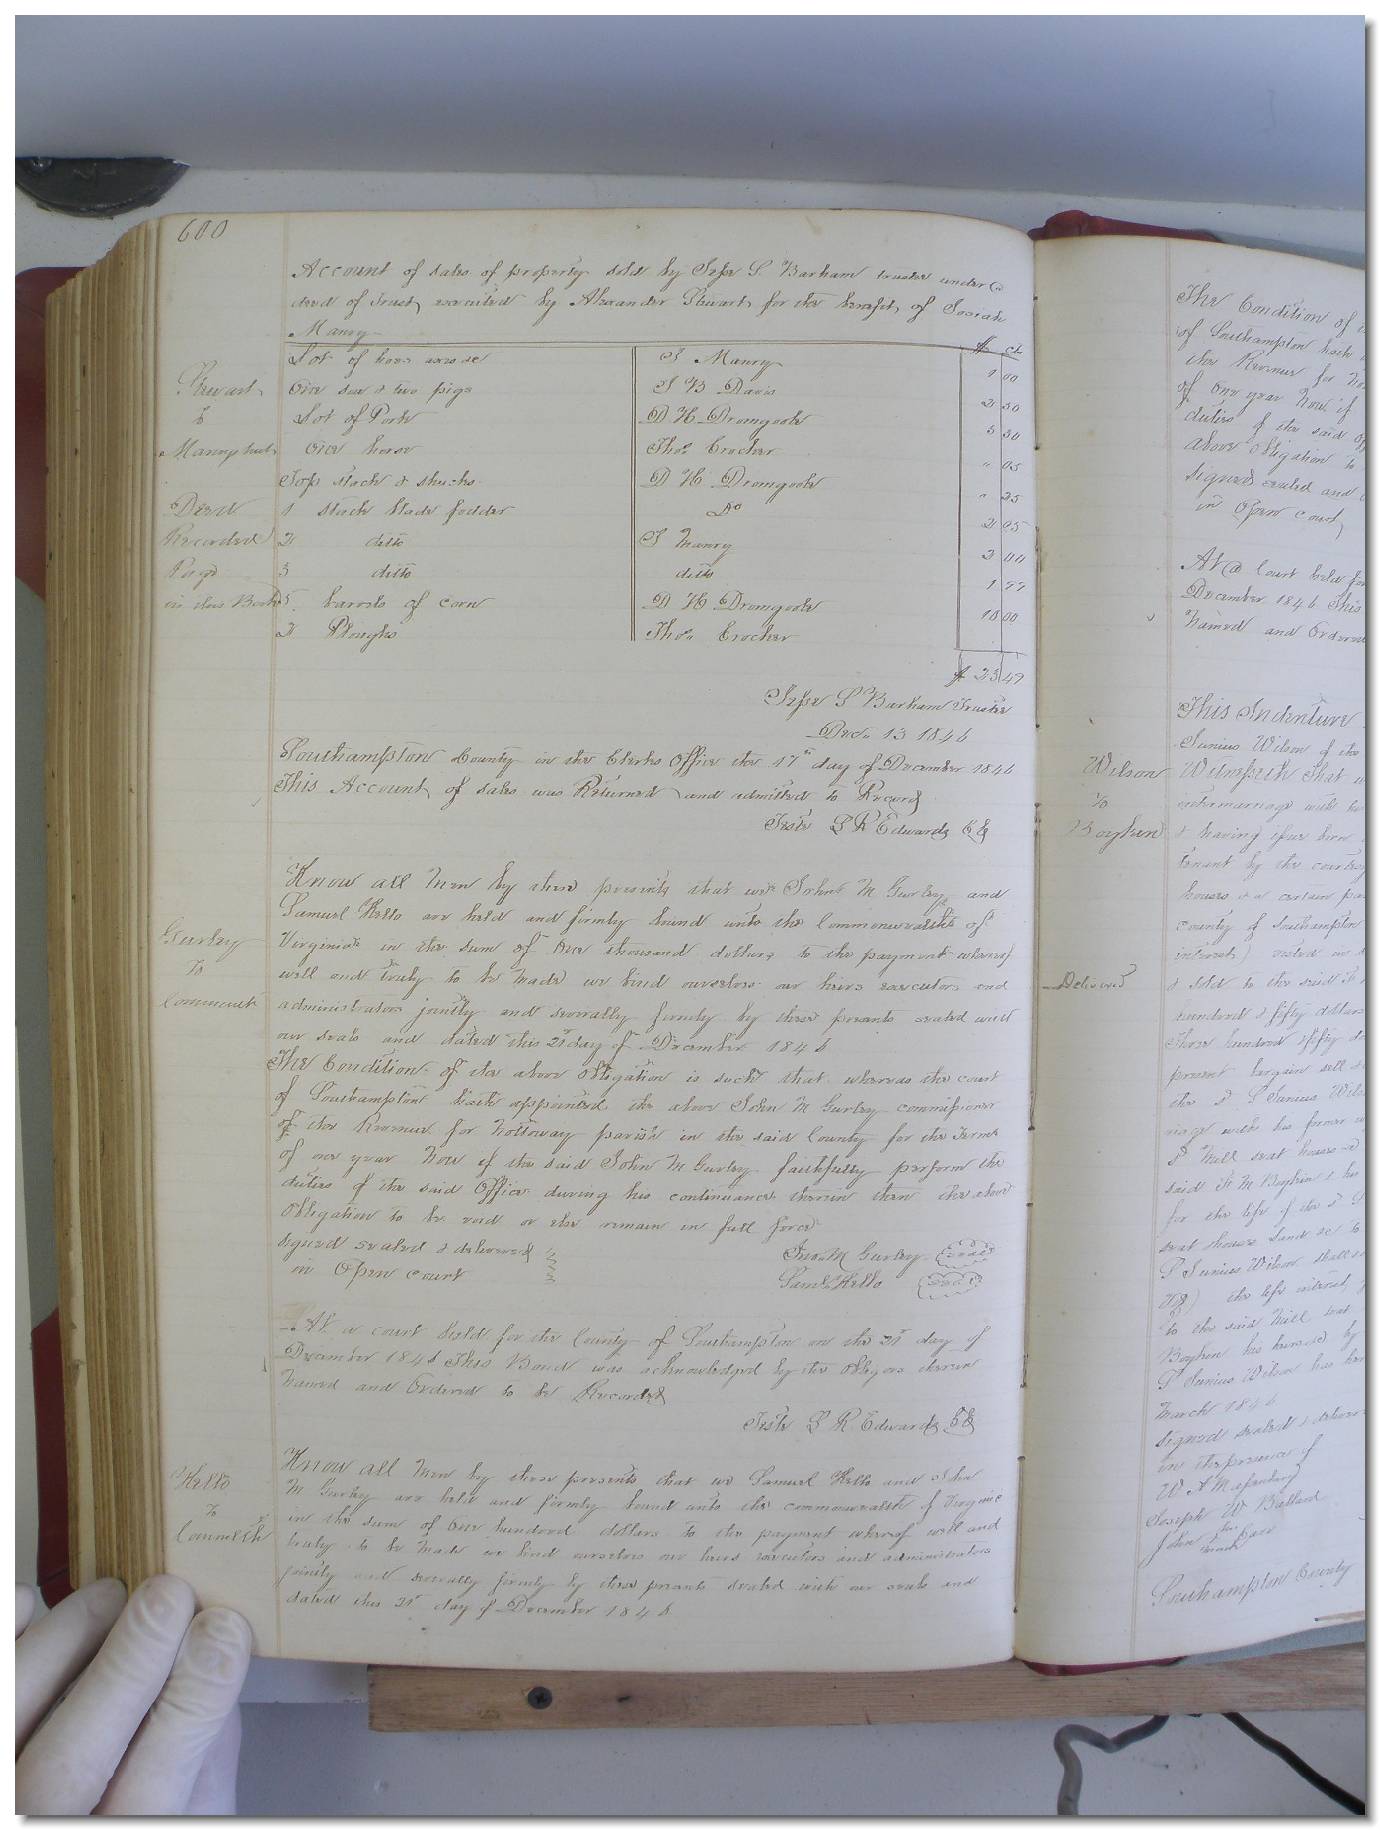 600
Account of sales of property sold by Jesse S Barham trustee under a
deed of Trust, executed by Alexander Stewart, for the benefit, of Josiah
Manry
$ ct
Lot of hoes axes &c J Manry 1 00
One sow & two pigs J B Davis 2 50
Lot of Pork D H Dromgoole 5 50
One horse Thos Crocker " 05
Top stack & shucks D H Dromgoole " 25
1 stack blade fodder Do 2 05
2 ditto J Manry 2 00
3 ditto ditto 1 99
5 barrels of corn D H Dromgoole 10 00
2 Ploughs Thos Crocker
Stewart
to
Manry
Deed
Recorded
Page
in this Book
$ 25 49
Jesse S Barham Trustee
Dec. 13 1846
Southampton County in the Clerks Office the 17th day of December 1846
This Account, of sales was Returned and admitted to Record
Teste L R Edwards CC
Gurley
To
Commwth
Know all Men by these presents that we John M Gurley and
Samuel Kello are held and firmly bound unto the Commonwealth of
Virginia in the sum of One thousand dollars to the payment whereof
well and truly to be made we bind ourselves our heirs executors and
administrators jointly and severally firmly by these presents sealed with
our seals and dated this 21st day of December 1846
The Condition of the above obligation is such that whereas the court
of Southampton hath appointed the above John M Gurley commissioner
of the Revenue for Nottoway parish in the said County for the Term
of one year Now if the said John M Gurley faithfully perform the
duties of the said Office during his continuance therein then the above
obligation to be void or else remain in full force
Signed sealed & delivered
in Open court
Jno M Gurley Seal
Saml Kello Seal
At a court held for the County of Southampton on the 21st day of
December 1846 This Bond was acknowledged by the obligors therein
Named and Ordered to be Recorded
Teste L R Edwards CC
Kello
To
Commwlth
Know all Men by these presents that we Samuel Kello and John
M Gurley are held and firmly bound unto the commonwealth of Virginia
in the sum of One hundred dollars to the payment whereof well and
truly to be made we bind ourselves our heirs executors and administrators
jointly and severally firmly by these presents sealed with our seals and
dated this 21st day of December 1846
The Condition of
of Southampton hath
the Revenue for
of One year Now if
duties of the said
above obligation to
Signed sealed and
in Open court
At a Court held for
December 1846 This
Named and Ordered
Wilson
To
Boykin
Delivered
This Indenture
Junius Wilson of the
Witnesseth That
intermarriage with
& having issue born
tenant by the courtesy
houses & a certain
county of Southampton
interest) vested in
& sold to the said
hundred & fifty dollars
Three hundred & fifty
present bargain sell
the
riage with his former
Mill seat houses
said M Boykin & his
for the life of the
seat houses Land &c to
Junius Wilson shall
the life interest,
to the said Mill seat
Boykin his heirs by
Junius Wilson has
March 1846
Signed sealed & delivered
in the presence of
W A
Joseph W Ballard
John his mark
Southampton County